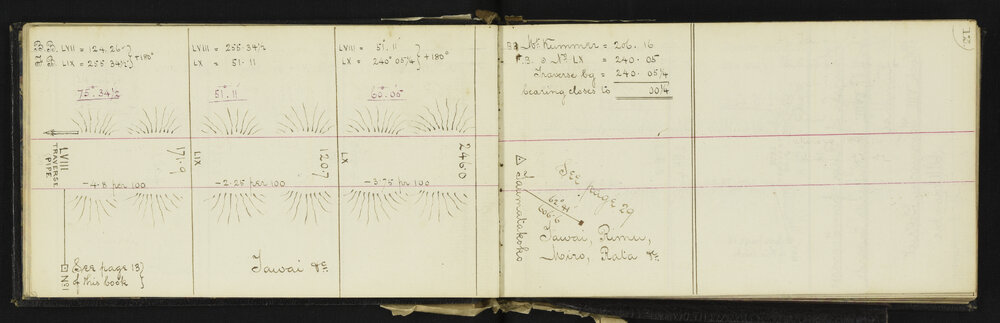 LVII = 124.26
LIX = 255.34½ } +180°
75°.34½
LVIII = 255.34½
LX = 51.11
51°.11'
LVIII = 51°.11'
LX = 240°05¼ } +180°
60°.05'
LVIII
TRAVERSE
PIPE
171.9
LIX
1207
LX
2460
-4.8 per 100
-2.25 per 100
-3.75 per 100
(See page 13)
of this book }
No 1
Tawai &c.
12
Mt Kummer = 206.16
F.B. @ No LX = 240.05
Traverse bg = 240.05¼
bearing closes to 00¼
See page 29
Taumatakoko
62°41'
606.6
Tawai, Rimu,
Miro, Rata &c.